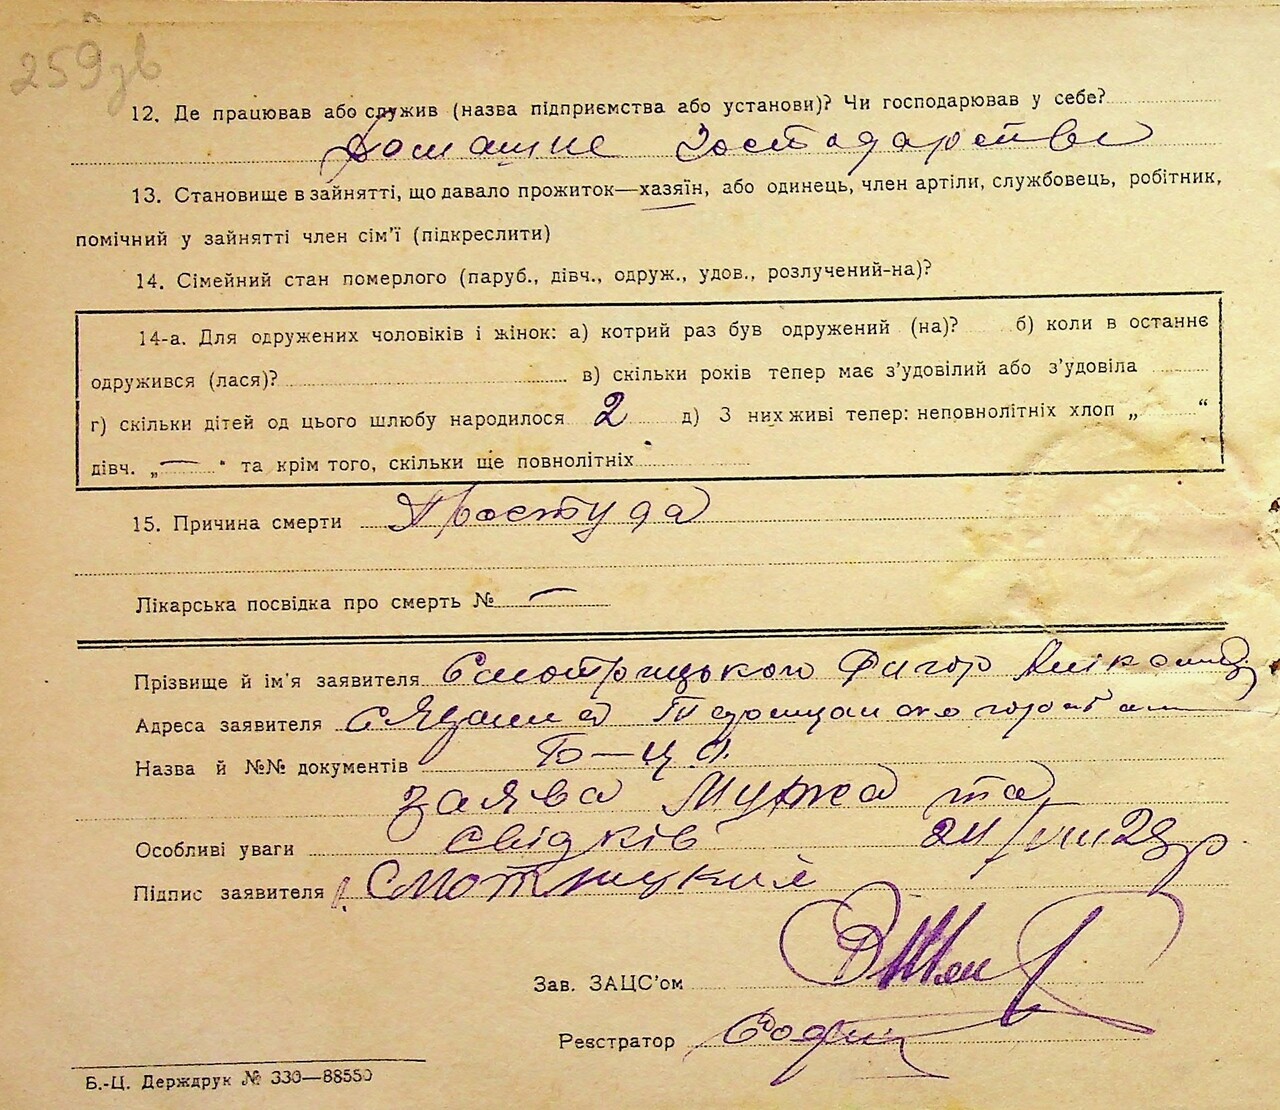 259зв
12. Де працював або служив (назва підприємства або установи)? Чи господарював у себе?
Домашнє господарство
13. Становище в зайнятті, що давало прожиток—хазяїн, або одинець, член артіли, службовець, робітник,
помічний у зайнятті член сім'ї (підкреслити)
14. Сімейний стан померлого (паруб., дівч., одруж., удов., розлучений-на)?
14-а. Для одружених чоловіків і жінок: а) котрий раз був одружений (на)? б) коли в останнє
одружився (лася)? в) скільки років тепер має з'удовілий або з'удовіла
г) скільки дітей од цього шлюбу народилося 2 д) З них живі тепер: неповнолітніх хлоп „ “
дівч. „—“ та крім того, скільки ще повнолітніх
15. Причина смерти Простуда
Лікарська посвідка про смерть № —
Прізвище й ім'я заявителя Смотрицького
Адреса заявителя
Назва й №№ документів Б—Ц
заява мужа та
Особливі уваги свідків 24/VIII 28 р
Підпис заявителя Смотрицкий
Зав. ЗАЦС'ом
Реєстратор
Б.-Ц. Держдрук № 330—88550